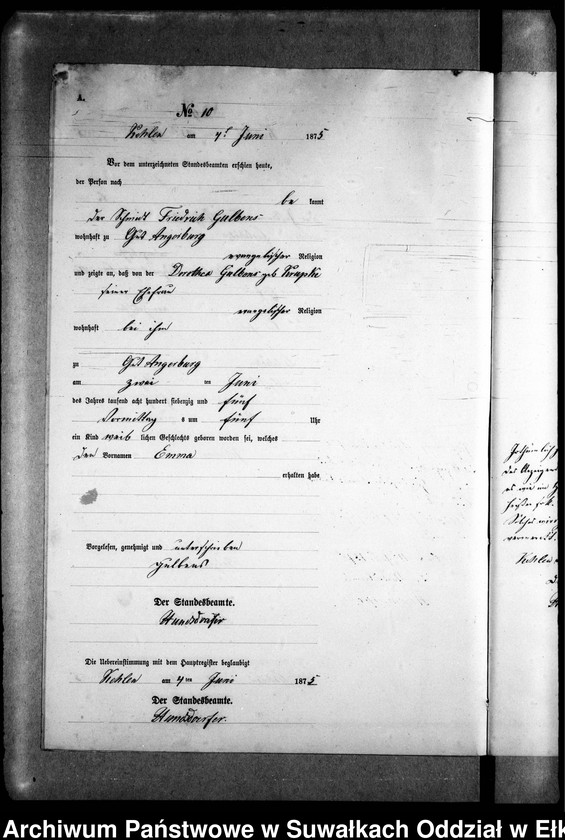 A.
№ 10
Kehlen am 4t Juni 1875
Vor dem unterzeichneten Standesbeamten erschien heute,
der Person nach
be kannt
der Schmidt Friedrich Gulbens
wohnhaft zu Gut Angerburg
evangelischer Religion
und zeigte an, daß von der Dorothea Gulbens geb
seiner Ehefrau
evangelischer Religion
wohnhaft bei ihm
zu Gut Angerburg
am zwei ten Juni
des Jahres tausend acht hundert siebenzig und fünf
Vormittag s um fünf Uhr
ein Kind weib lichen Geschlechts geboren worden sei, welches
den Vornamen Emma
erhalten habe
Vorgelesen, genehmigt und unterschrieben
Gulbens
Der Standesbeamte.
Die Uebereinstimmung mit dem Hauptregister beglaubigt
Kehlen am 4ten Juni 1875
Der Standesbeamte.
Kehlen
Archiwum Państwowe w Suwałkach Oddział w Ełk